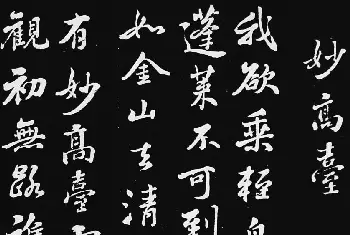 妙高臺
我欲乘輕
蓬萊不可到
如金山去清
有妙高臺
觀初無路